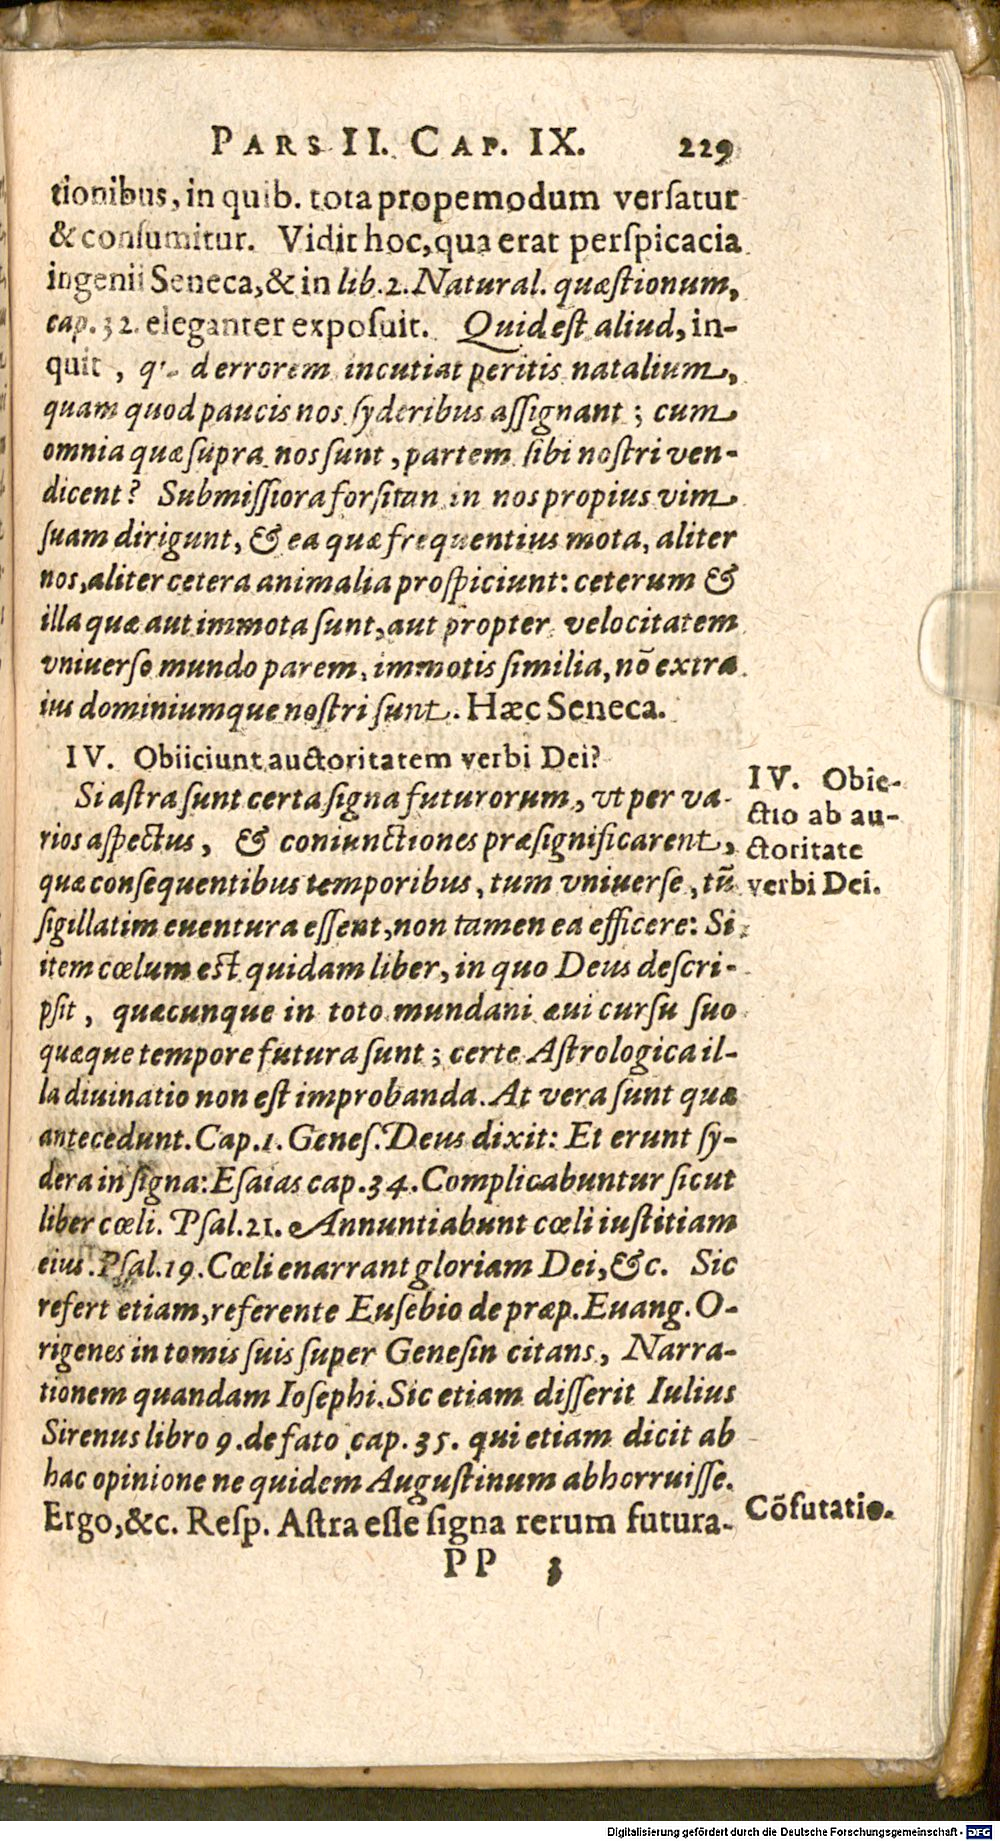 PARS II. CAP. IX. 229
tionibus, in quib. tota propemodum versatur
& consumitur. Vidit hoc, qua erat perspicacia
ingenii Seneca, & in lib. 2. Natural. quæstionum,
cap. 32. eleganter exposuit. Quid est aliud, in-
quit, d errorem incutiat peritis natalium,
quam quod paucis nos syderibus assignant; cum
omnia quæ supra nos sunt, partem sibi nostri ven-
dicent? Submissiora forsitan in nos propius vim
suam dirigunt, & ea quæ frequentius mota, aliter
nos, aliter cetera animalia prospiciunt: ceterum &
illa quæ aut immota sunt, aut propter velocitatem
vniuerso mundo parem, immotis similia, nō extra
ius dominiumque nostri sunt. Hæc Seneca.
IV. Obiiciunt auctoritatem verbi Dei?
IV. Obie-
ctio ab au-
ctoritate
verbi Dei.
Si astra sunt certa signa futurorum, vt per va-
rios aspectus, & coniunctiones præsignificarent,
quæ consequentibus temporibus, tum vniuerse, tū
sigillatim euentura essent, non tamen ea efficere: Si
item cœlum est quidam liber, in quo Deus descri-
psit, quæcunque in toto mundani æui cursu suo
quæque tempore futura sunt; certe Astrologica il-
la diuinatio non est improbanda. At vera sunt quæ
antecedunt. Cap. 1. Genes. Deus dixit: Et erunt sy-
dera in signa: Esaias cap. 34. Complicabuntur sicut
liber cœli. Psal. 21. Annuntiabunt cœli iustitiam
eius. Psal. 19. Cœli enarrant gloriam Dei, &c. Sic
refert etiam, referente Eusebio de præp. Euang. O-
rigenes in tomis suis super Genesin citans, Narra-
tionem quandam Iosephi. Sic etiam disserit Iulius
Sirenus libro 9. de fato cap. 35. qui etiam dicit ab
hac opinione ne quidem Augustinum abhorruisse.
Ergo, &c. Resp. Astra esse signa rerum futura-
Cōfutatio.
PP 3
Digitalisierung gefördert durch die Deutsche Forschungsgemeinschaft - DFG